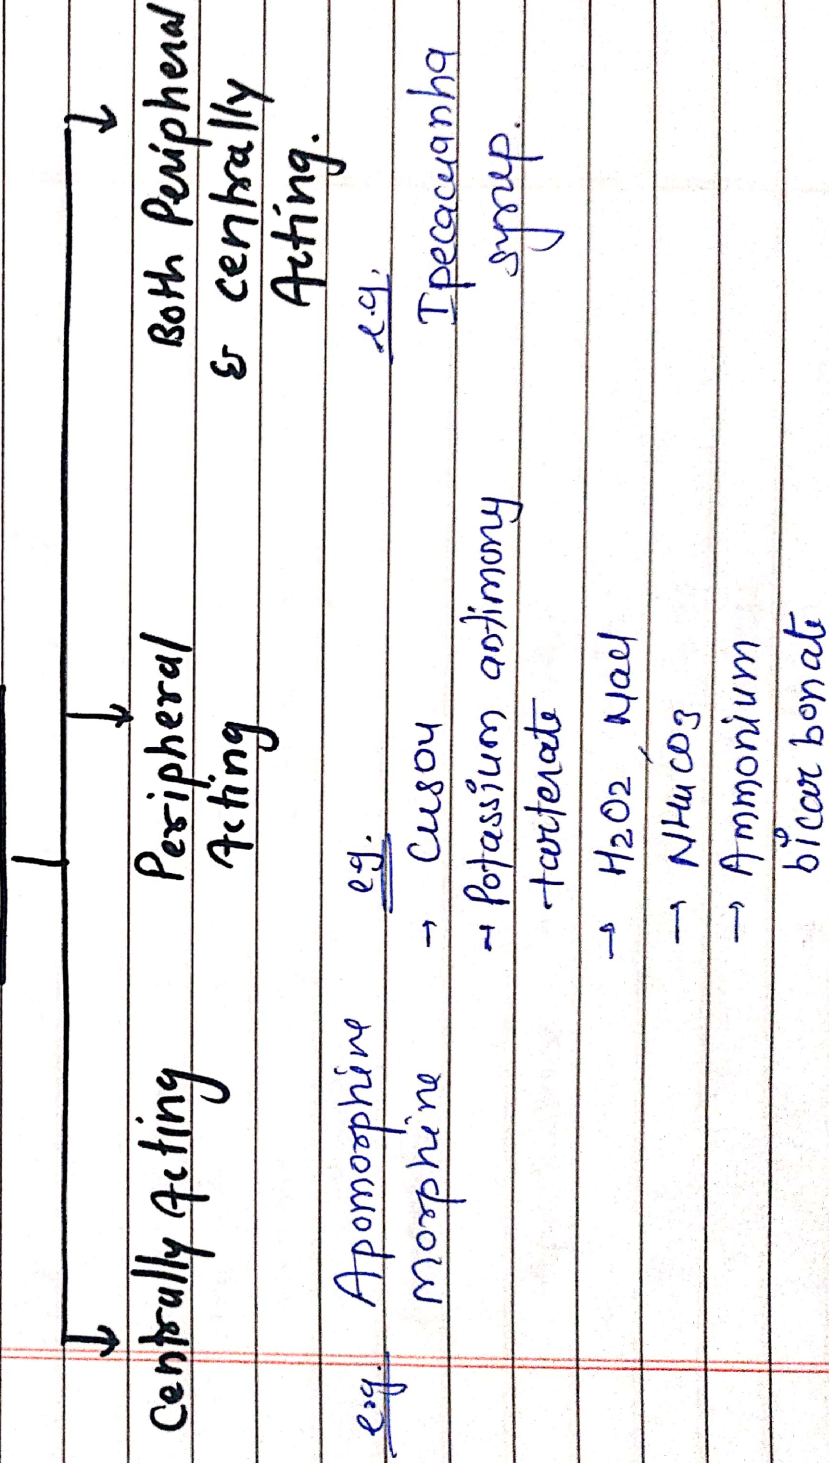 Centrally Acting
e.g. Apomorphine
Morphine
Peripheral
Acting
e.g.
→ CuSO4
→ Potassium antimony
tarterate
→ H2O2, NaCl
→ NH4CO3
→ Ammonium
bicarbonate
Both Peripheral
& centrally
Acting.
e.g.
Ipecacuanha
syrup.